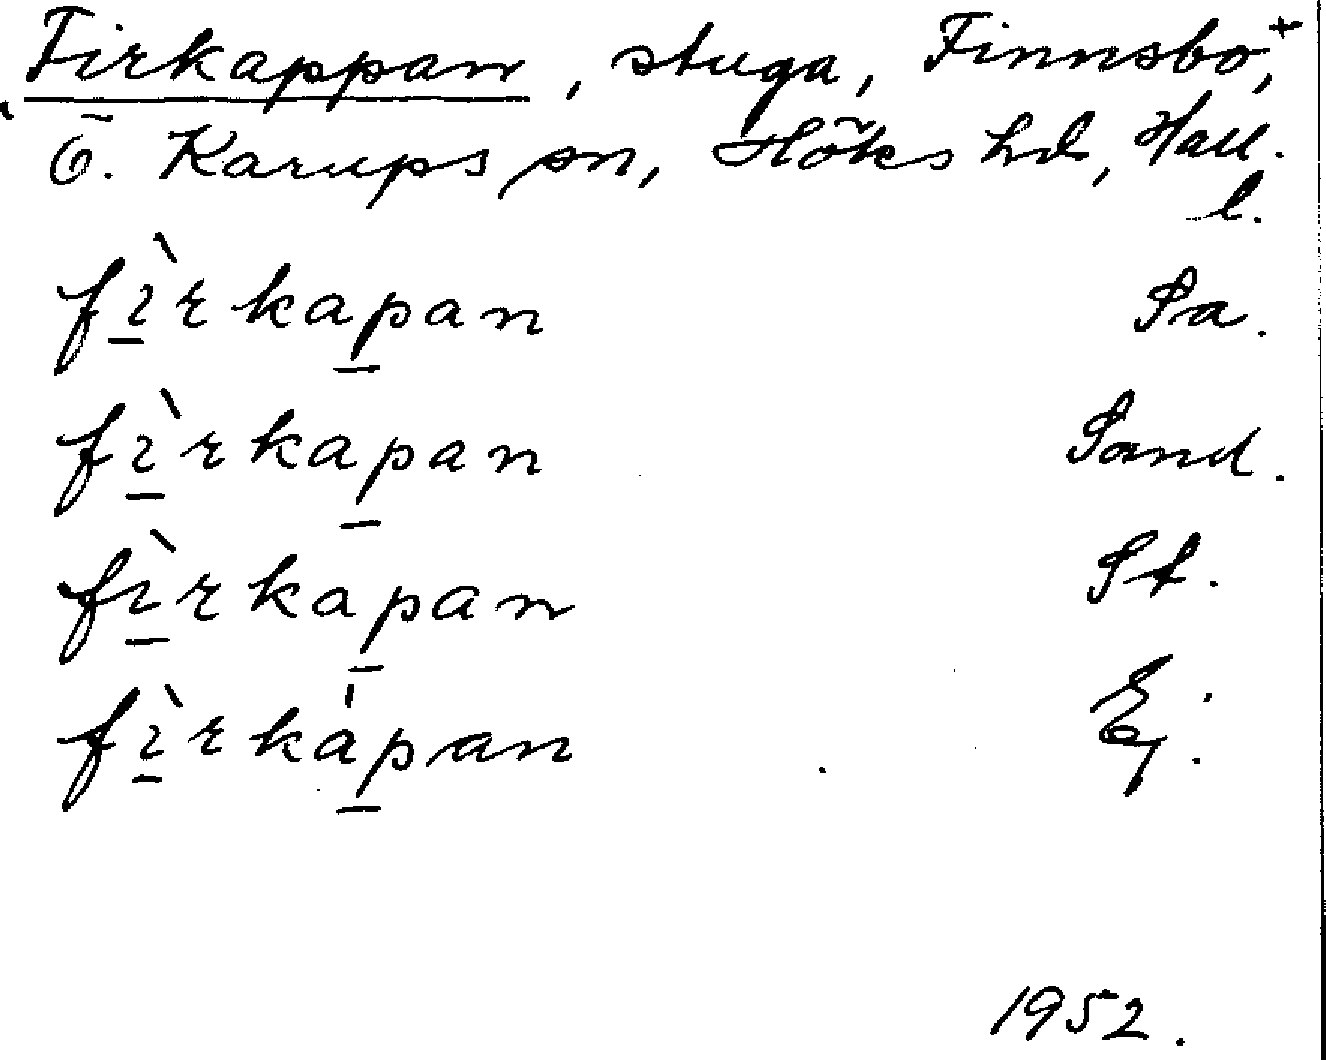 Firkappan, stuga, Finnsbo,+
Ö. Karups sn, Höks hd, Hall.
l.
fı̀rkapan Sa.
fı̀rkapan Sand.
fı̀rkapan St.
fı̀rkápan Ej.
1952.